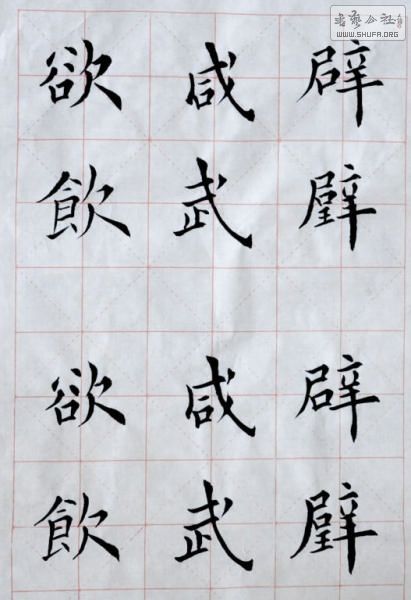 书艺公社
WWW.SHUFA.ORG
辟壁辟壁
咸武咸武
欲飲欲飲